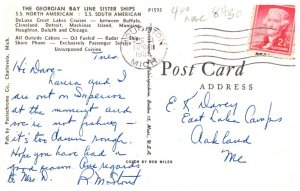 THE GEORGIAN BAY LINE SISTER SHIPS
S.S. NORTH AMERICAN : S.S. SOUTH AMERICAN
DeLuxe Great Lakes Cruises - between Buffalo,
Cleveland, Detroit, Mackinac Island, Munising,
Houghton, Duluth and Chicago
All Outside Cabins - Oil Fueled - Radar - Ship
Shore Phone - Exclusively Passenger Service
Uncrowded
P1593
Hi Dave-
Laura and I
are out on Superior
at the moment and
we're not fishing-
it's too damn rough.
Hope you have had a
good season
to Mrs D.
Pub. by Penrod
COLOR BY BOB MILES
MICH
2¢
Post Card
ADDRESS
E K Davey
East Lake Camps
Oakland
Me